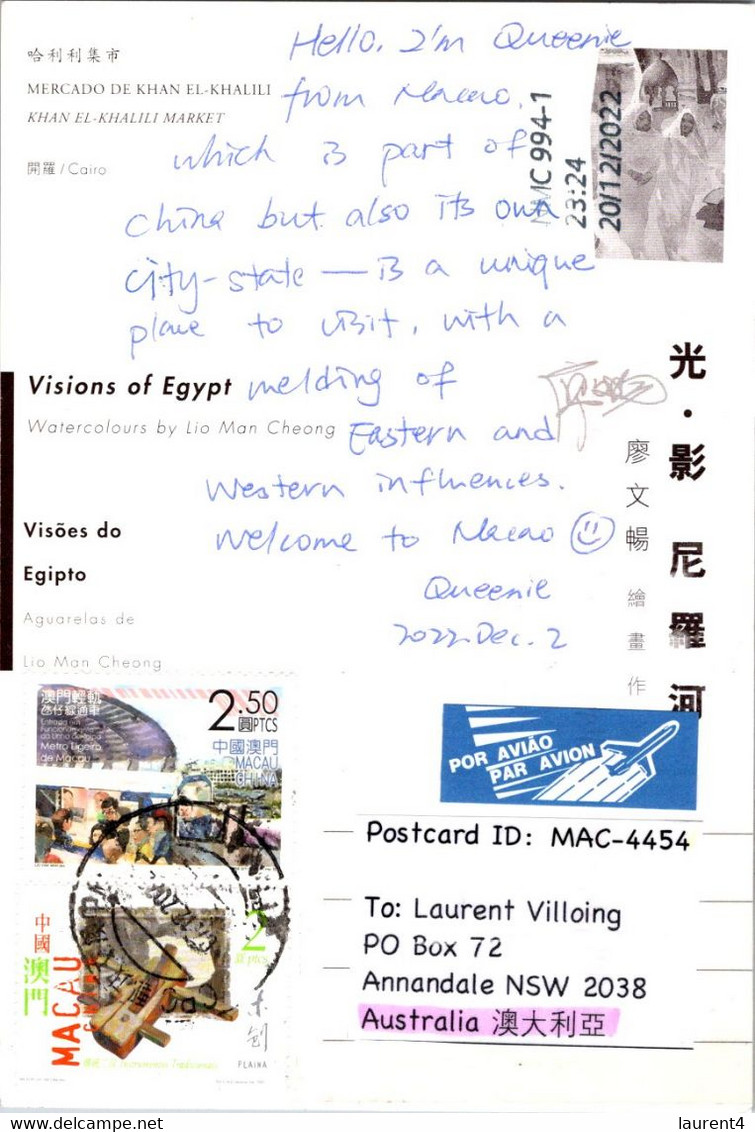 哈利利集市
MERCADO DE KHAN EL-KHALILI
KHAN EL-KHALILI MARKET
開羅/Cairo
Hello. I'm Queenie
from Macao.
which is part of
China but also its own
city-state — is a unique
place to visit, with a
melding of
Eastern and
Western influences.
Welcome to Macao ☺
Queenie
2022.Dec.2
NMC 994-1
23:24
20/12/2022
Visions of Egypt
Watercolours by Lio Man Cheong
Visões do
Egipto
Aguarelas de
Lio Man Cheong
光·影 尼羅河
廖文暢 繪畫作
澳門輕軌
氹仔線通車
Metro Ligeiro
de Macau
2.50
圓PTCS
中國澳門
MACAU
CHINA
中國
澳門
MACAU
2
ptcs
木刨
PLAINA
POR AVIÃO
PAR AVION
Postcard ID: MAC-4454
To: Laurent Villoing
PO Box 72
Annandale NSW 2038
Australia 澳大利亞
laurent4